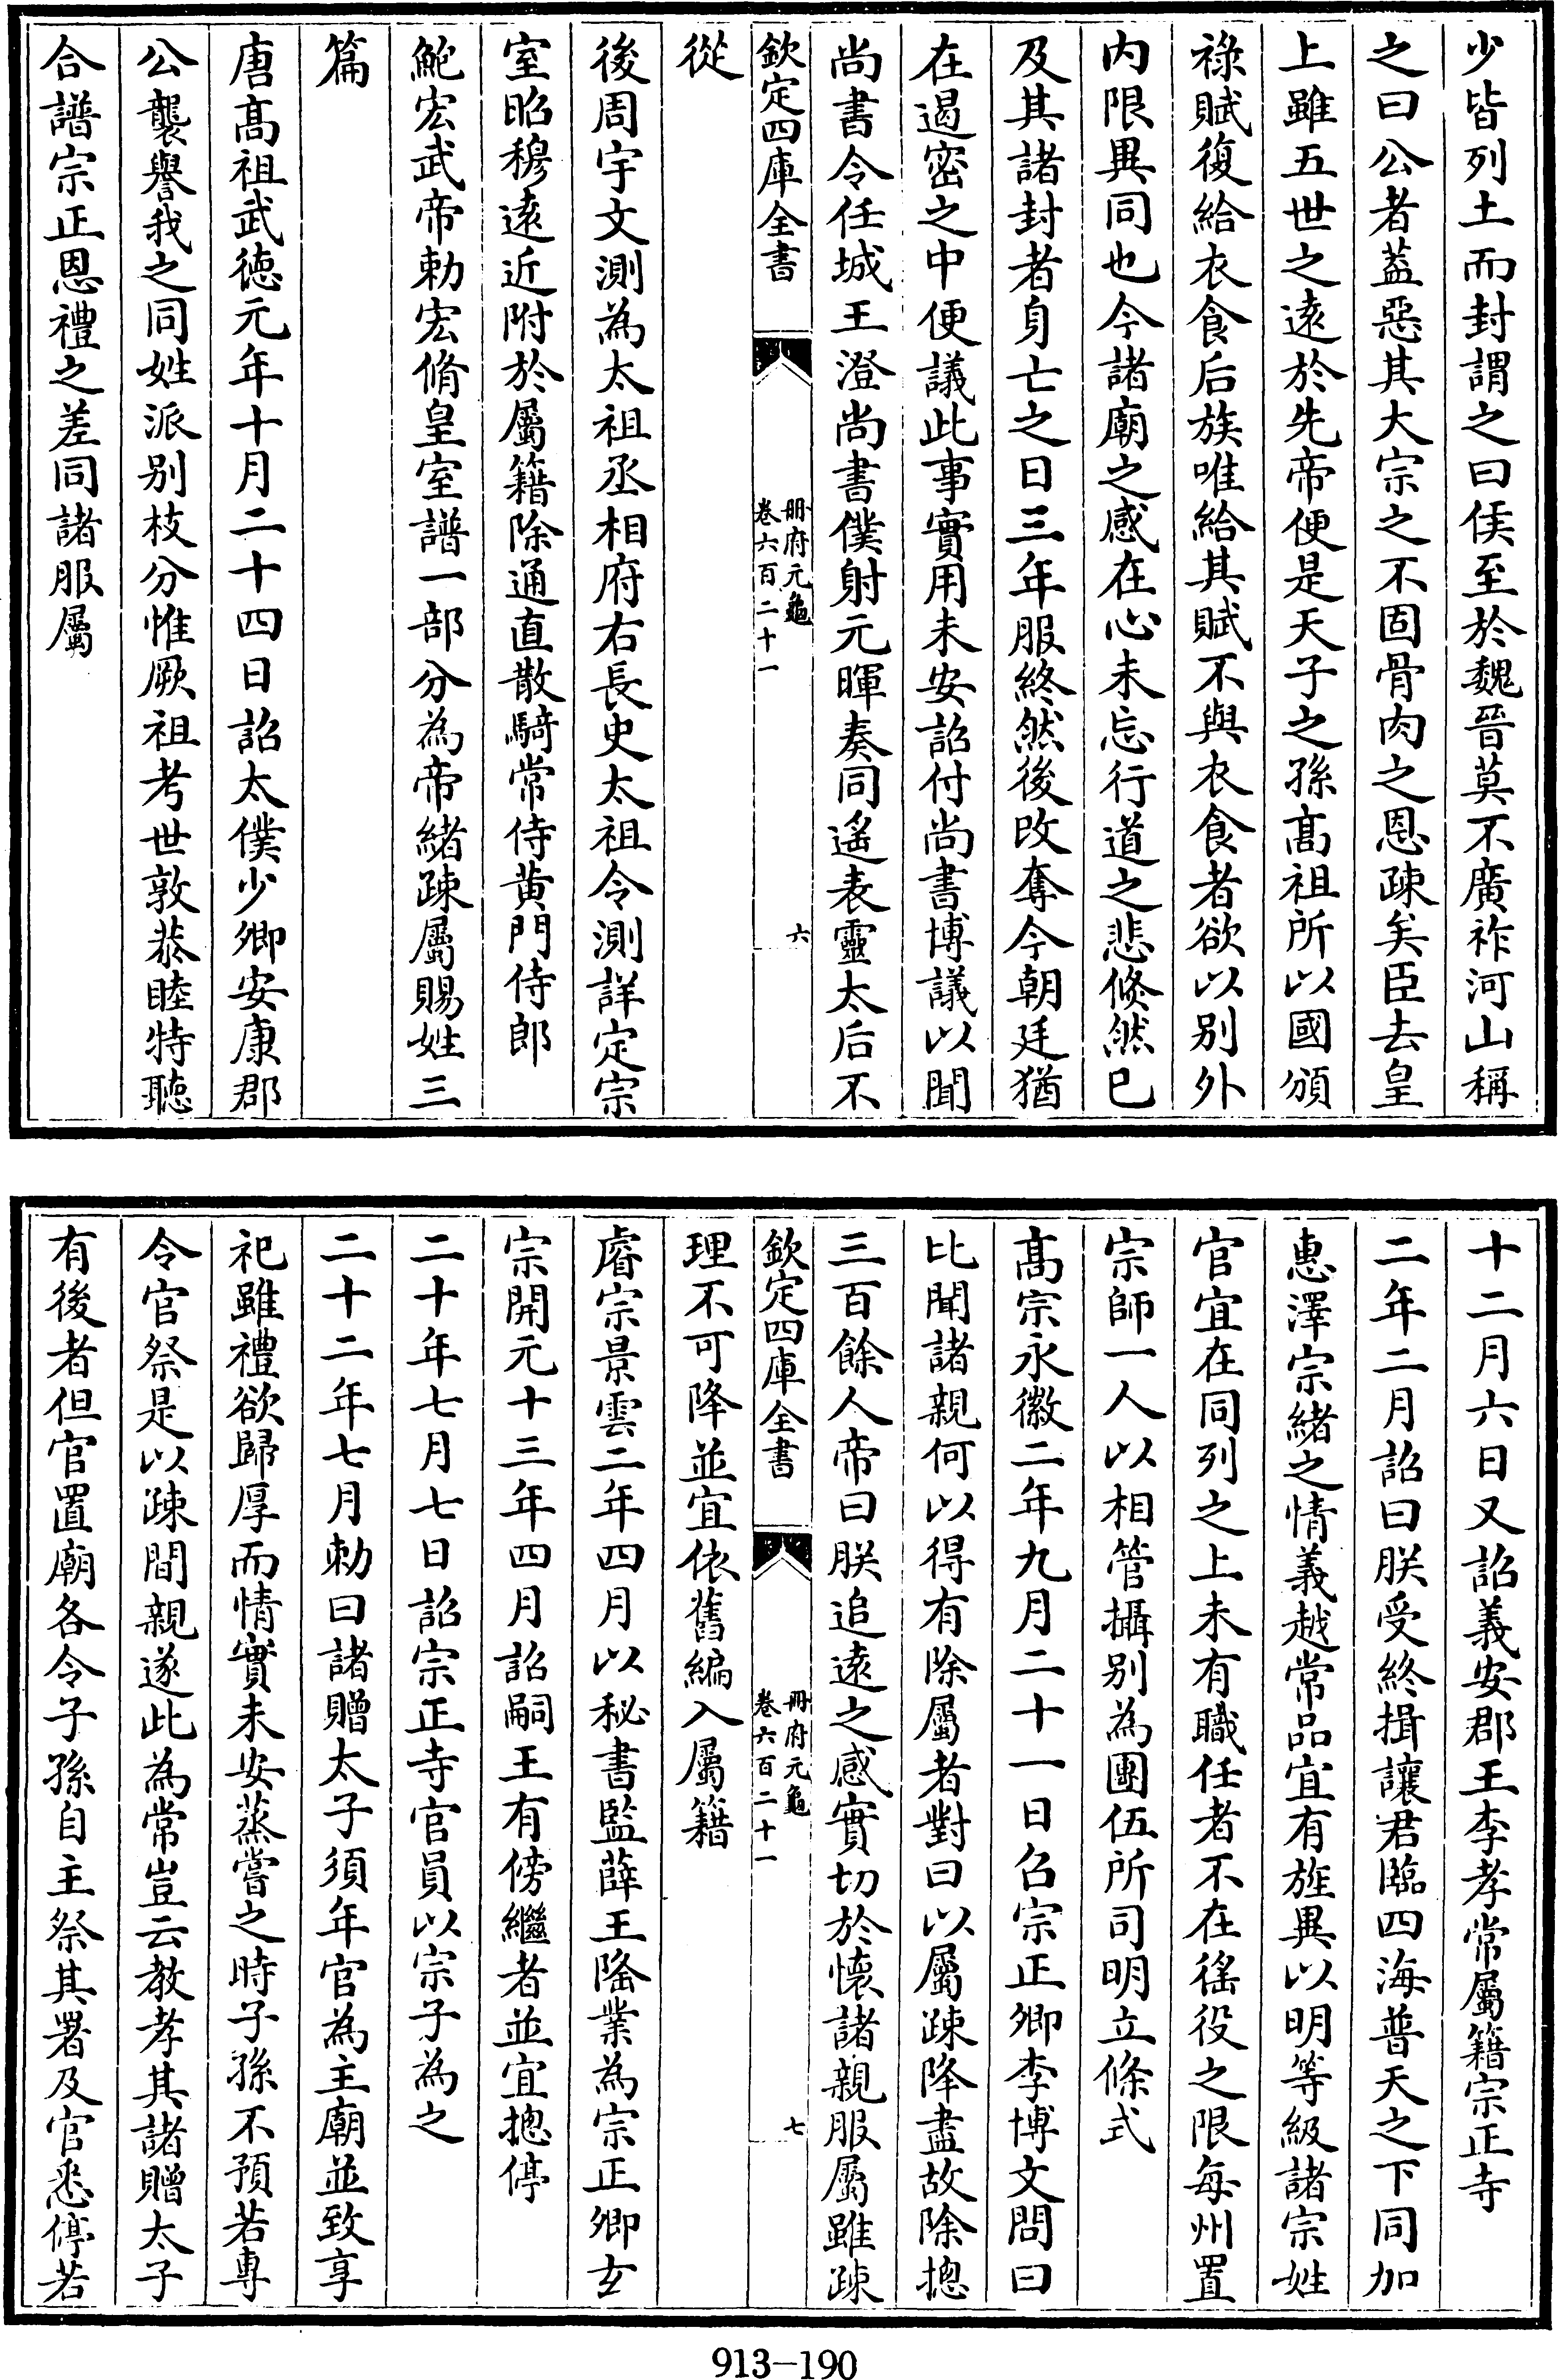 少皆列土而封謂之曰侯至於魏晉莫不廣祚河山稱
之曰公者葢惡其大宗之不固骨肉之恩疎矣臣去皇
上雖五世之遠於先帝便是天子之孫髙祖所以國頒
祿賦復給衣食后族唯給其賦不與衣食者欲以别外
内限異同也今諸廟之感在心未忘行道之悲倐然已
及其諸封者身亡之日三年服終然後改奪今朝廷猶
在遏密之中便議此事實用未安詔付尚書博議以聞
尚書令任城王澄尚書僕射元暉奏同遙表靈太后不
欽定四庫全書
冊府元龜
卷六百二十一
六
從
後周宇文測為太祖丞相府右長史太祖令測詳定宗
室昭穆逺近附於屬籍除通直散騎常侍黄門侍郎
鮑宏武帝勅宏脩皇室譜一部分為帝緒疎屬賜姓三
篇
唐髙祖武德元年十月二十四日詔太僕少卿安康郡
公襲譽我之同姓派别枝分惟厥祖考世敦恭睦特聽
合譜宗正恩禮之差同諸服屬
十二月六日又詔義安郡王李孝常屬籍宗正寺
二年二月詔曰朕受終揖讓君臨四海普天之下同加
惠澤宗緒之情義越常品宜有旌異以明等級諸宗姓
官宜在同列之上未有職任者不在徭役之限每州置
宗師一人以相管攝别為團伍所司明立條式
髙宗永徽二年九月二十一日召宗正卿李博文問曰
比聞諸親何以得有除屬者對曰以屬疎降盡故除摠
三百餘人帝曰朕追逺之感實切於懐諸親服屬雖疎
欽定四庫全書
冊府元龜
卷六百二十一
七
理不可降並宜依舊編入屬籍
睿宗景雲二年四月以秘書監薛王隆業為宗正卿玄
宗開元十三年四月詔嗣王有傍繼者並宜摠停
二十年七月七日詔宗正寺官員以宗子為之
二十二年七月勅曰諸贈太子須年官為主廟並致享
祀雖禮欲歸厚而情實未安蒸嘗之時子孫不預若専
令官祭是以疎間親遂此為常豈云教孝其諸贈太子
有後者但官置廟各令子孫自主祭其署及官悉停若
913-190